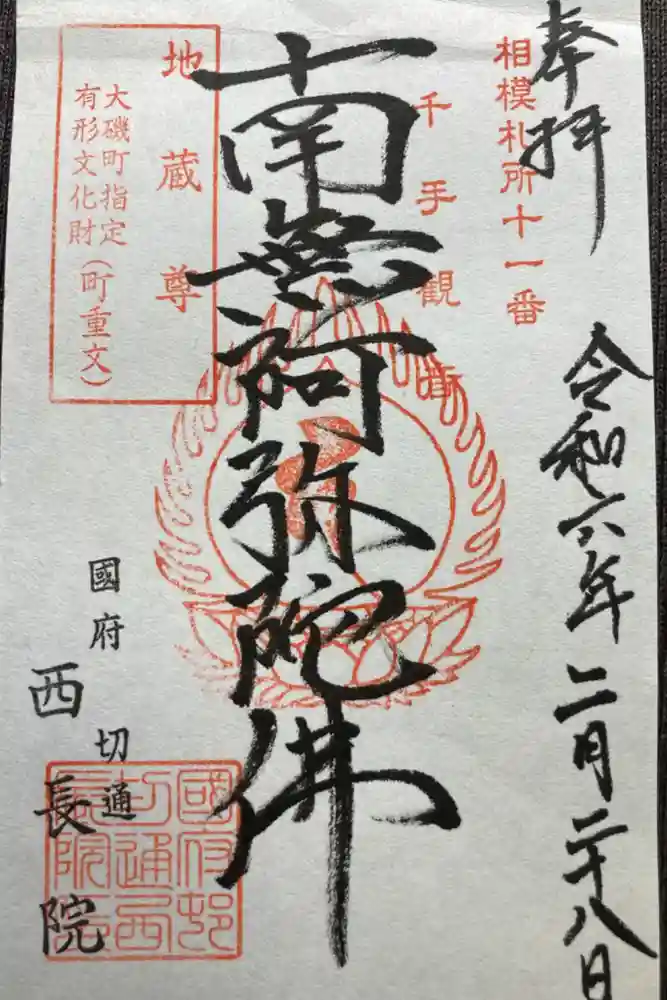 奉拝
令和六年二月二十八日
相模札所十一番
千手観音
南無阿弥陀佛
地蔵尊
大磯町指定
有形文化財(町重文)
國府
切通
西長院
國府邨
切通西
長院